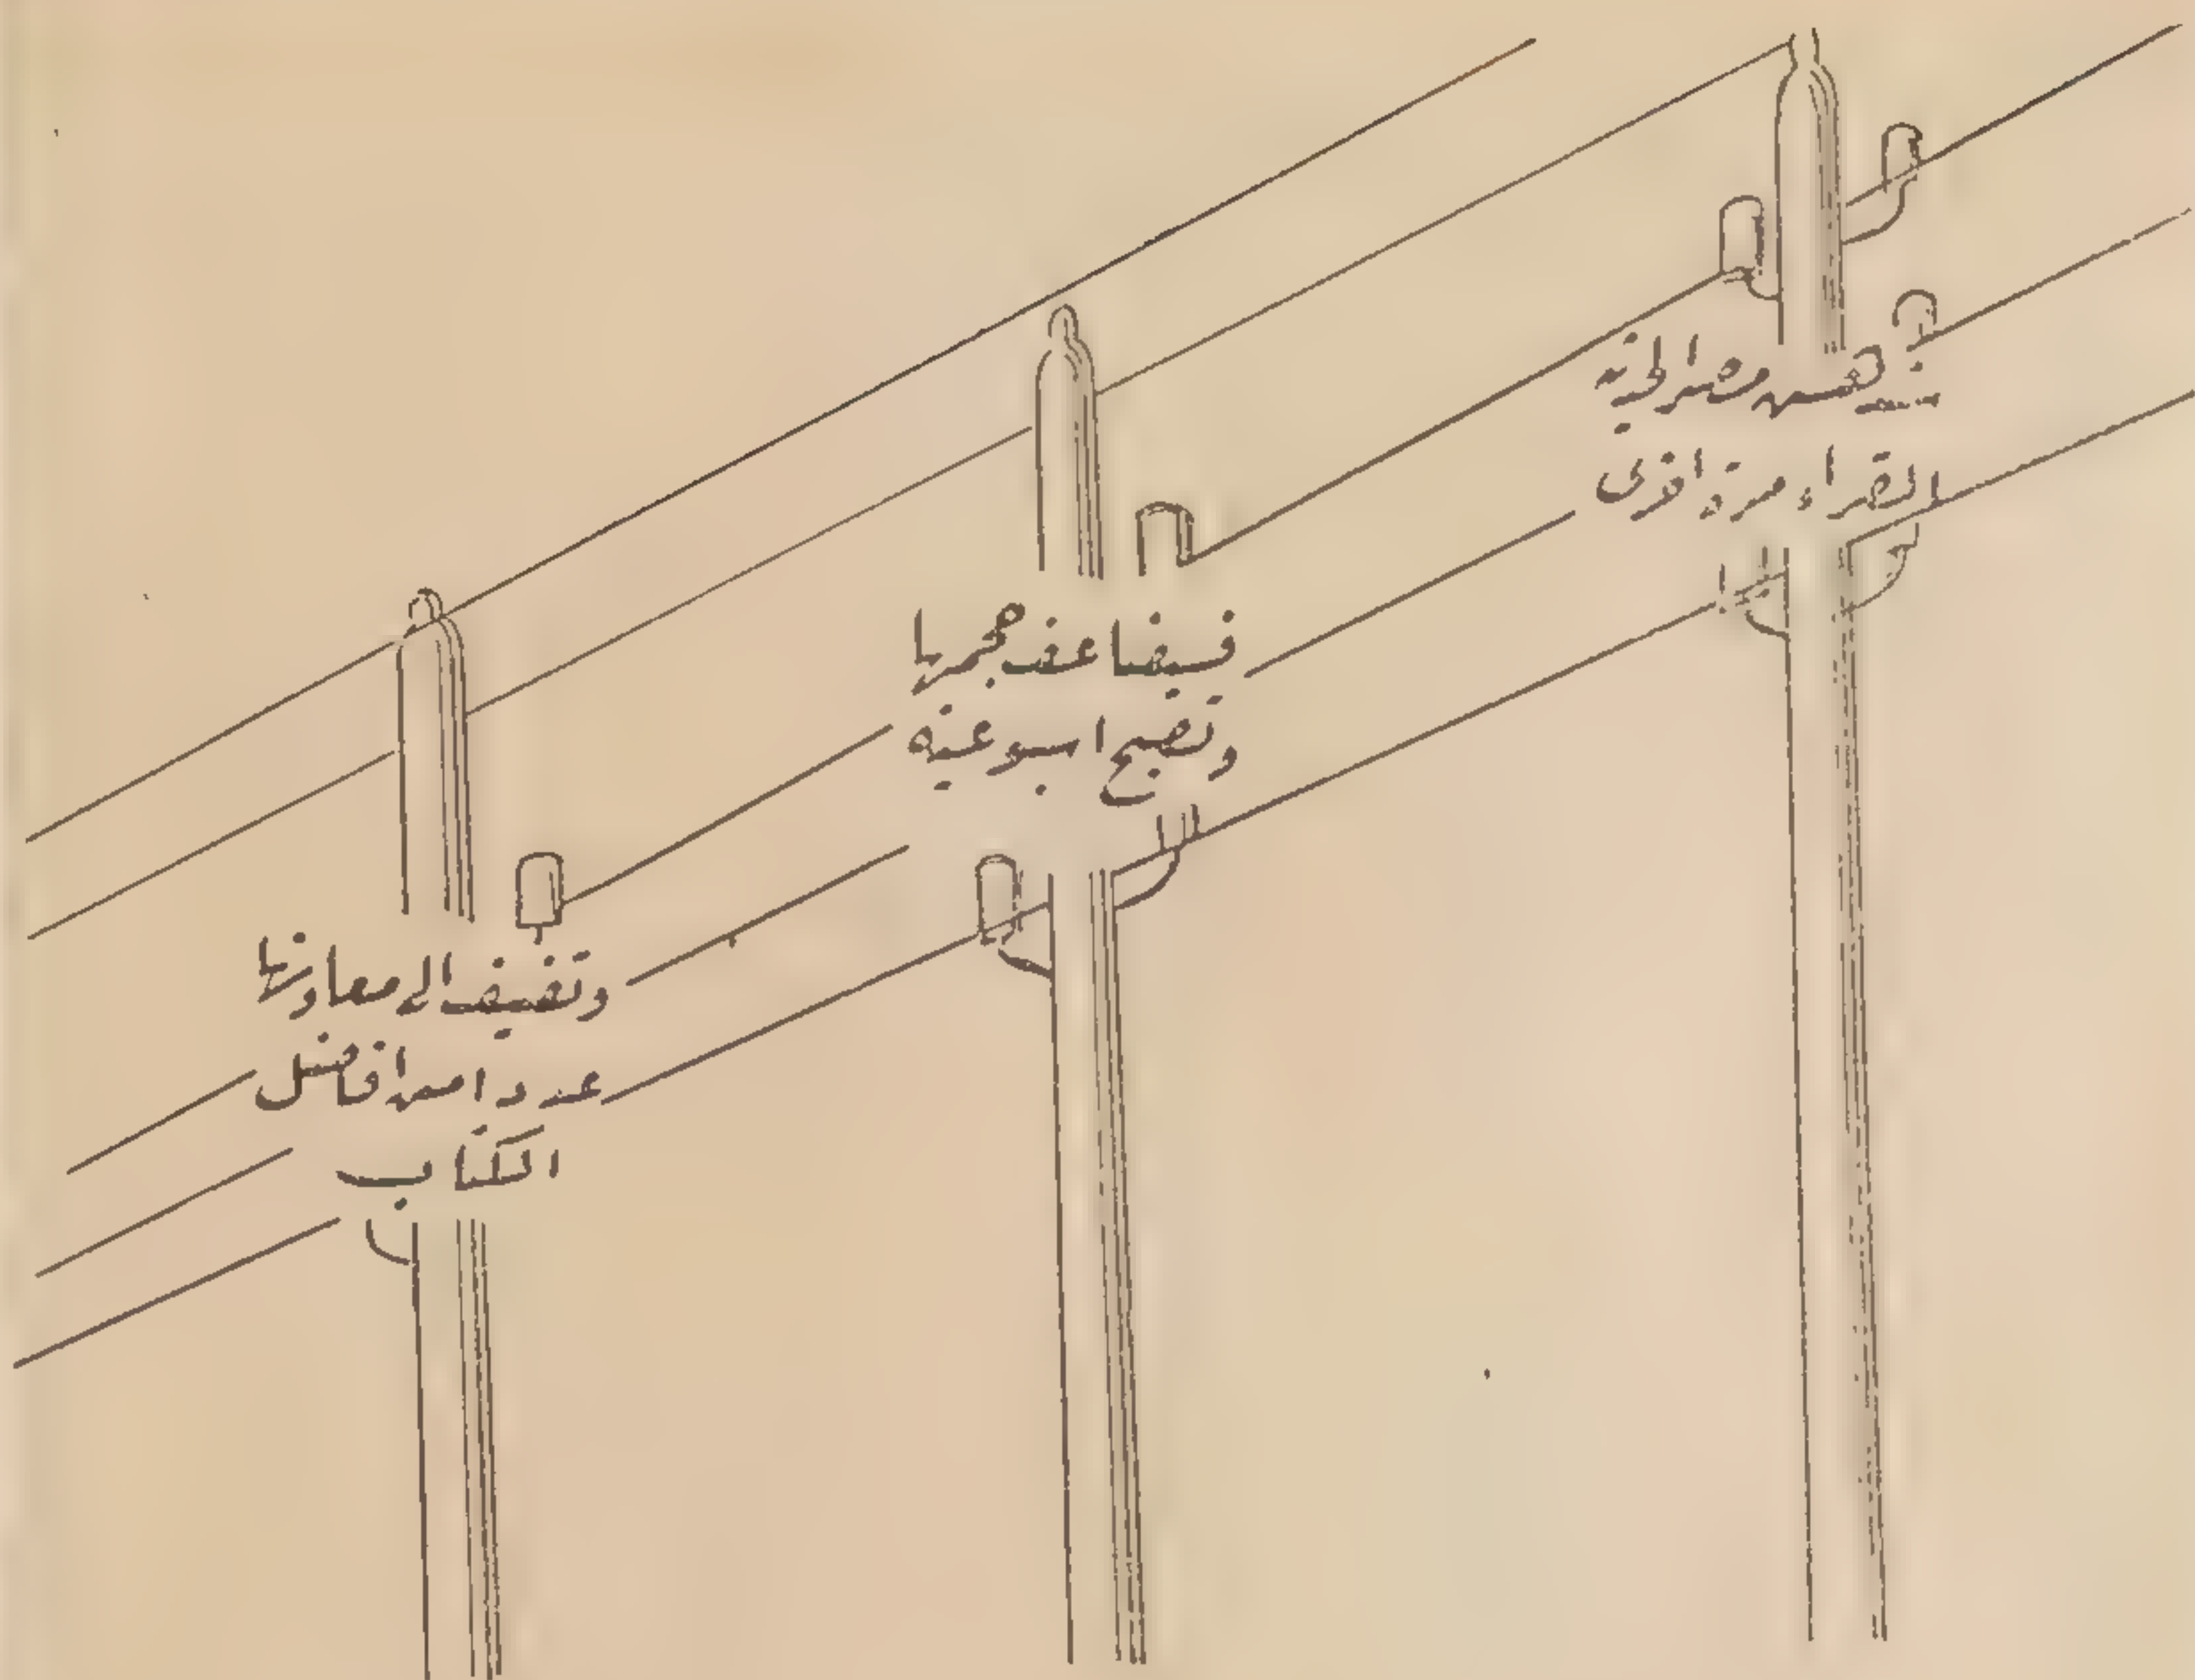 ستدهش مصر الحديثة
القراء مرة اخرى
فسيضاعف حجمها
وتصبح اسبوعية
وتضيف الى معاونيها
عددا من افاضل
الكتاب